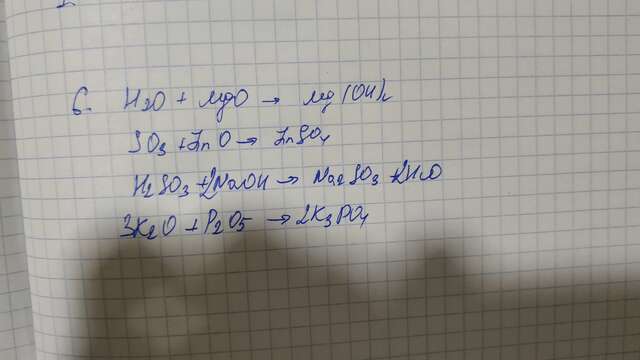 6. H2O + MgO → Mg(OH)2
SO3 + ZnO → ZnSO4
H2SO3 + 2NaOH → Na2SO3 + 2H2O
3K2O + P2O5 → 2K3PO4